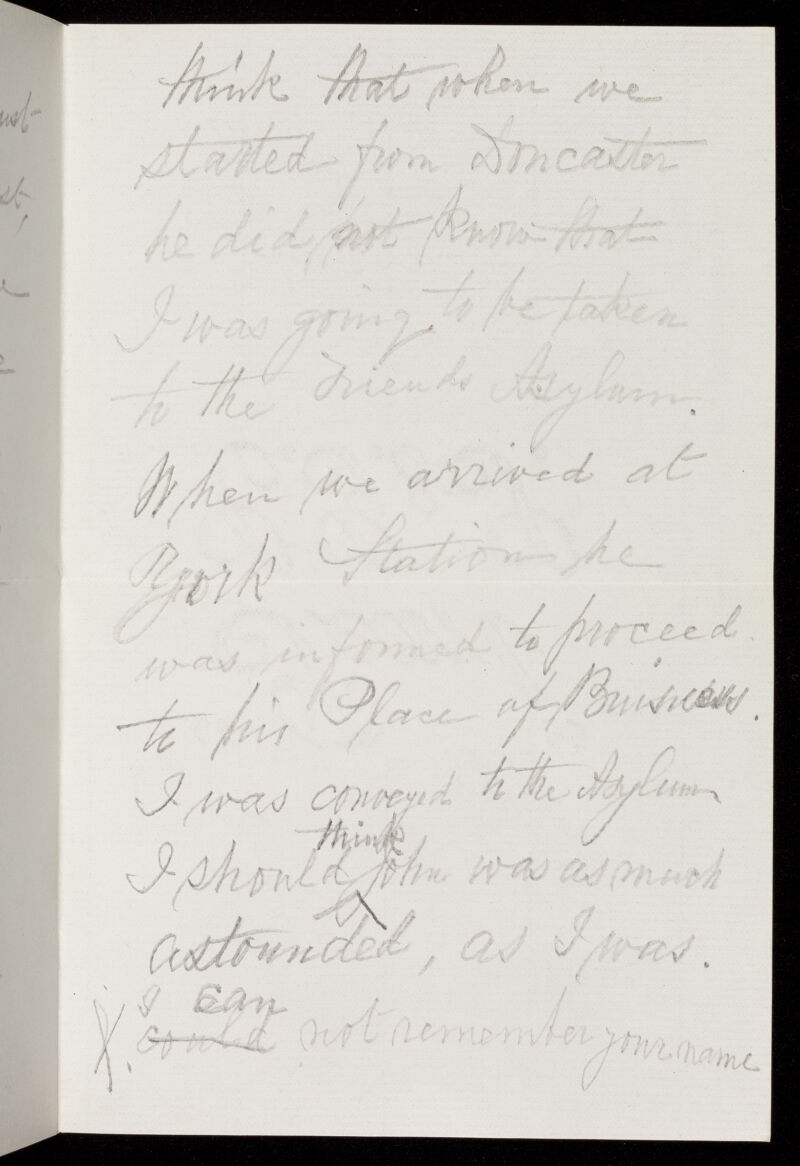 ust
st,
think that when we
started from Doncaster
he did not know that
I was going to be taken
to the Friends Asylum.
When we arrived at
York Station he
was informed to proceed
to his Place of Buisness.
I was conveyed to the Asylum
think
I should John was as much
astounded, as I was.
I can
X. could not remember your name